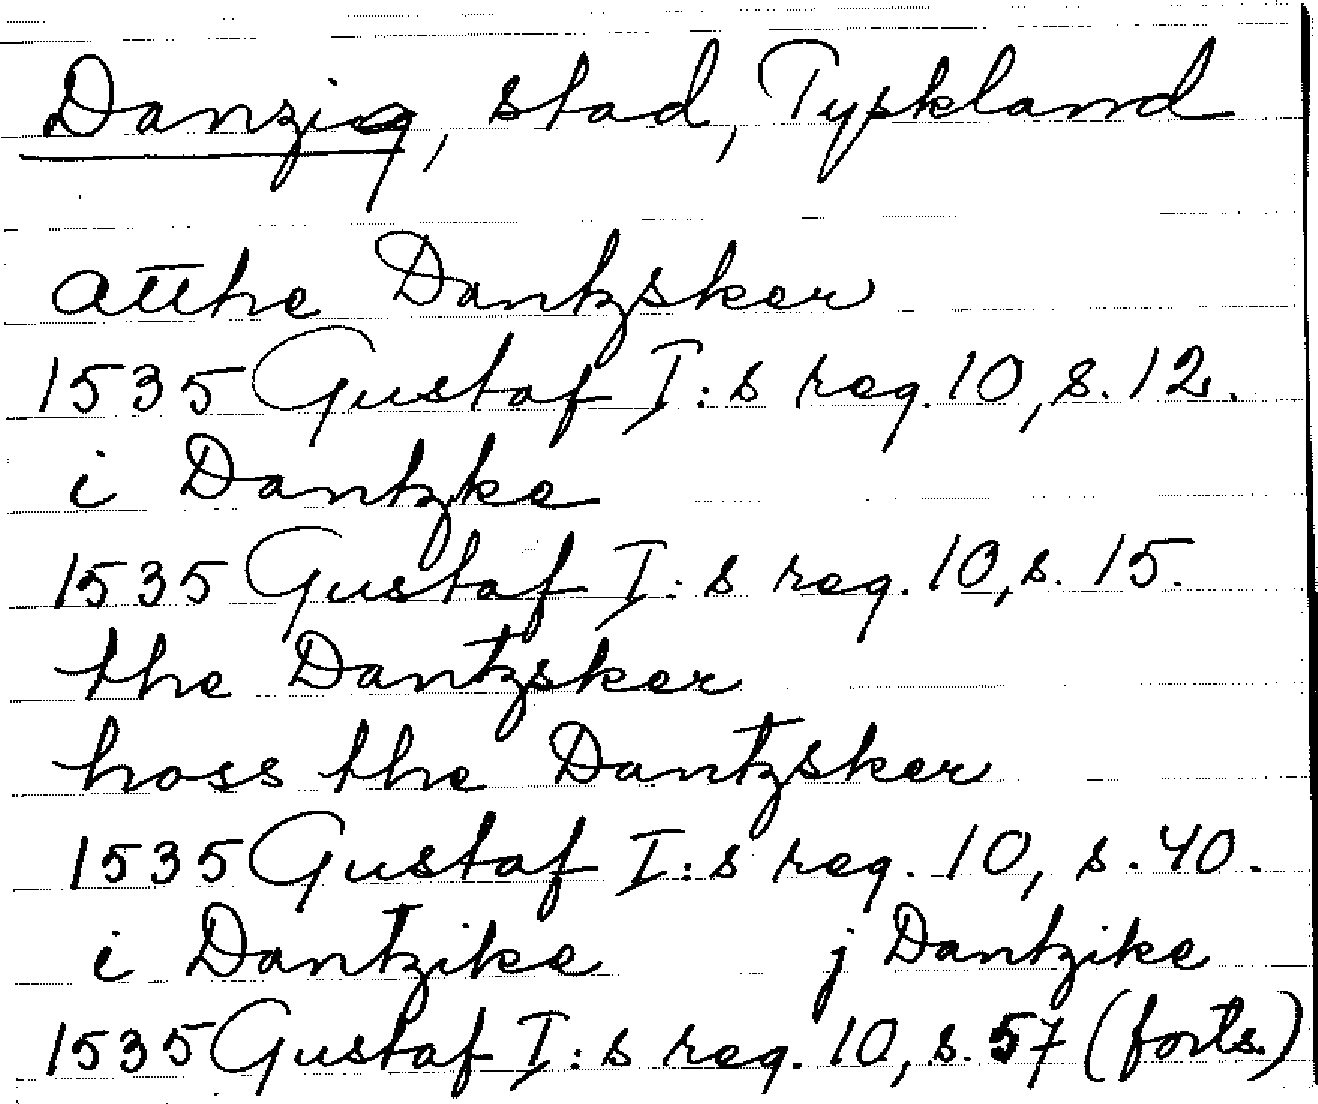 Danzig, stad, Tyskland
atthe Dantzsker
1535 Gustaf I:s reg. 10, s. 12.
i Dantzke
1535 Gustaf I:s reg. 10, s. 15.
the Dantzsker
hoss the Dantzsker
1535 Gustaf I:s reg. 10, s. 40.
i Dantzike j Dantzike
1535 Gustaf I:s reg. 10, s. 57 (forts.)